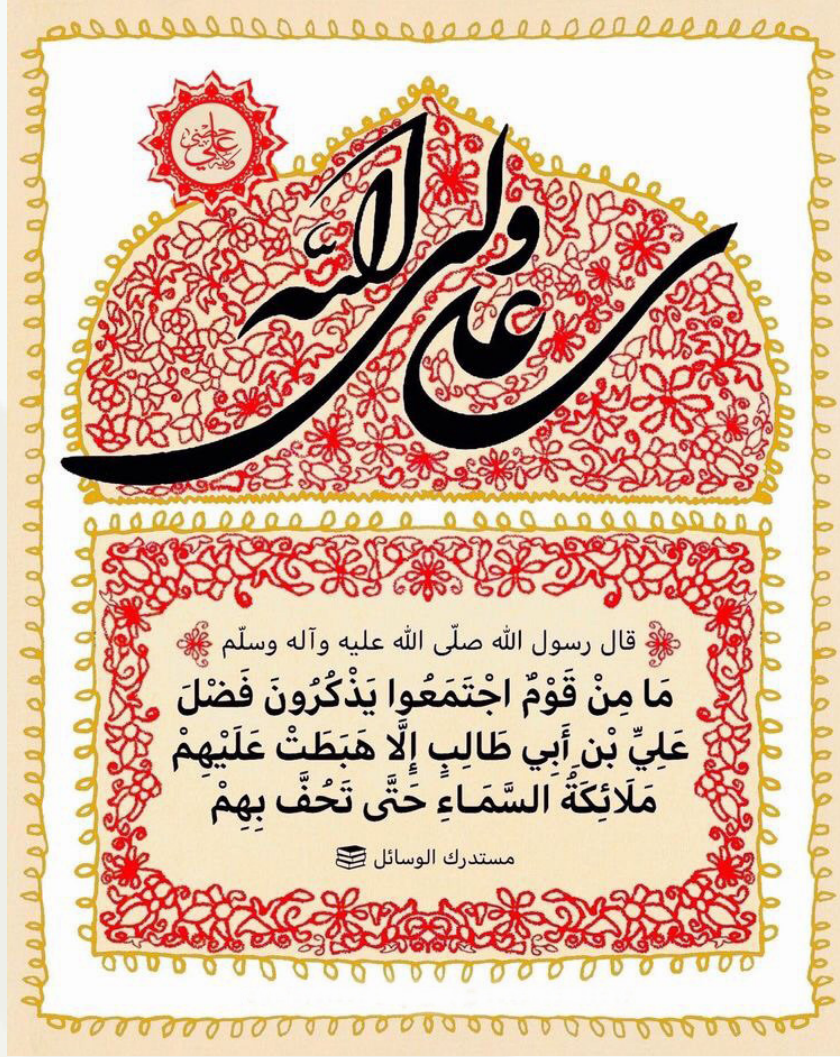 علي ولي الله
قال رسول الله صلّى الله عليه وآله وسلّم
مَا مِنْ قَوْمٌ اجْتَمَعُوا يَذْكُرُونَ فَضْلَ
عَلِيِّ بْنِ أَبِي طَالِبٍ إِلَّا هَبَطَتْ عَلَيْهِمْ
مَلَائِكَةُ السَّمَاءِ حَتَّى تَحُفَّ بِهِمْ
مستدرك الوسائل